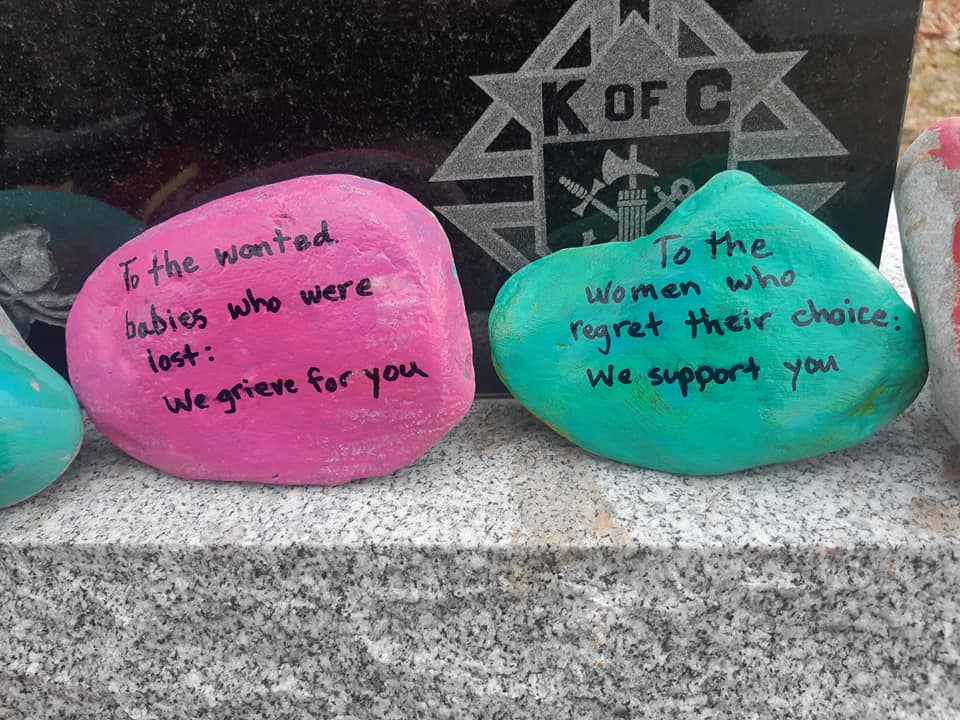 K OF C
To the wanted
babies who were
lost:
We grieve for you
To the
women who
regret their choice:
We support you